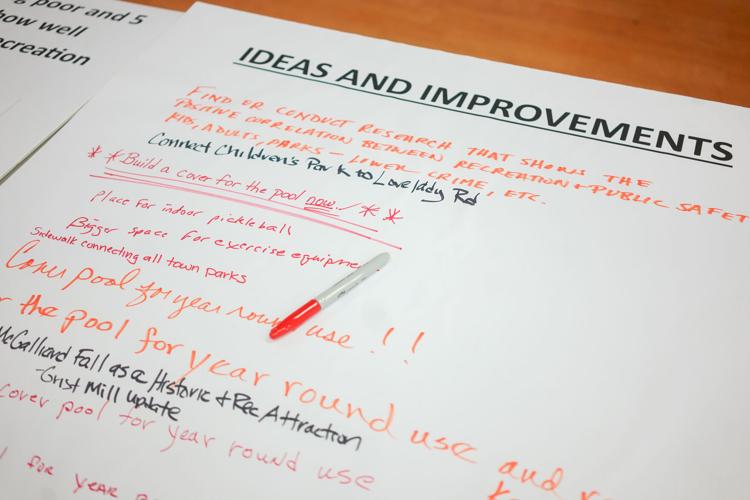 poor and 5
how well
ecreation
IDEAS AND IMPROVEMENTS
FIND OR CONDUCT RESEARCH THAT SHOWS THE
POSITIVE CORRELATION BETWEEN RECREATION + PUBLIC SAFET
KIDS, ADULTS, PARKS - LOWER CRIME, ETC.
Connect Children's Park to Lovelady Rd
* * Build a cover for the pool now! * *
Place for indoor pickleball
Bigger space for exercise equipme
Sidewalk connecting all town parks
Cover pool for year roun use !!
the pool for year round use and
McGalliard Fall as a Historic & Rec Attraction
-Grist Mill update
cover pool for year round use
FOR YEAR